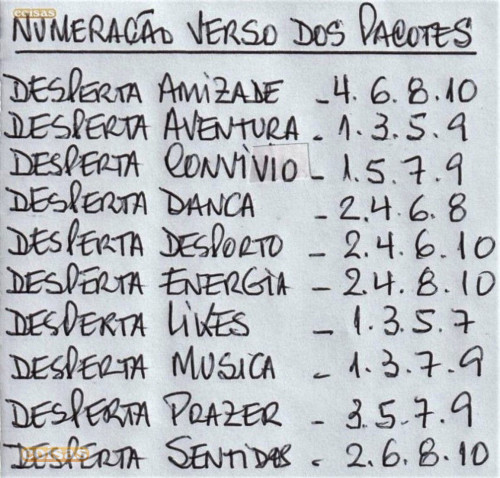 coisas
NUMERAÇÃO VERSO DOS PACOTES
DESPERTA AMIZADE - 4. 6. 8. 10
DESPERTA AVENTURA - 1. 3. 5. 9
DESPERTA CONVÍVIO - 1. 5. 7. 9
DESPERTA DANCA - 2. 4. 6. 8
DESPERTA DESPORTO - 2. 4. 6. 10
DESPERTA ENERGIA - 2. 4. 8. 10
DESPERTA LIKES - 1. 3. 5. 7
DESPERTA MUSICA - 1. 3. 7. 9
DESPERTA PRAZER - 3. 5. 7. 9
DESPERTA SENTIDOS - 2. 6. 8. 10
coisas